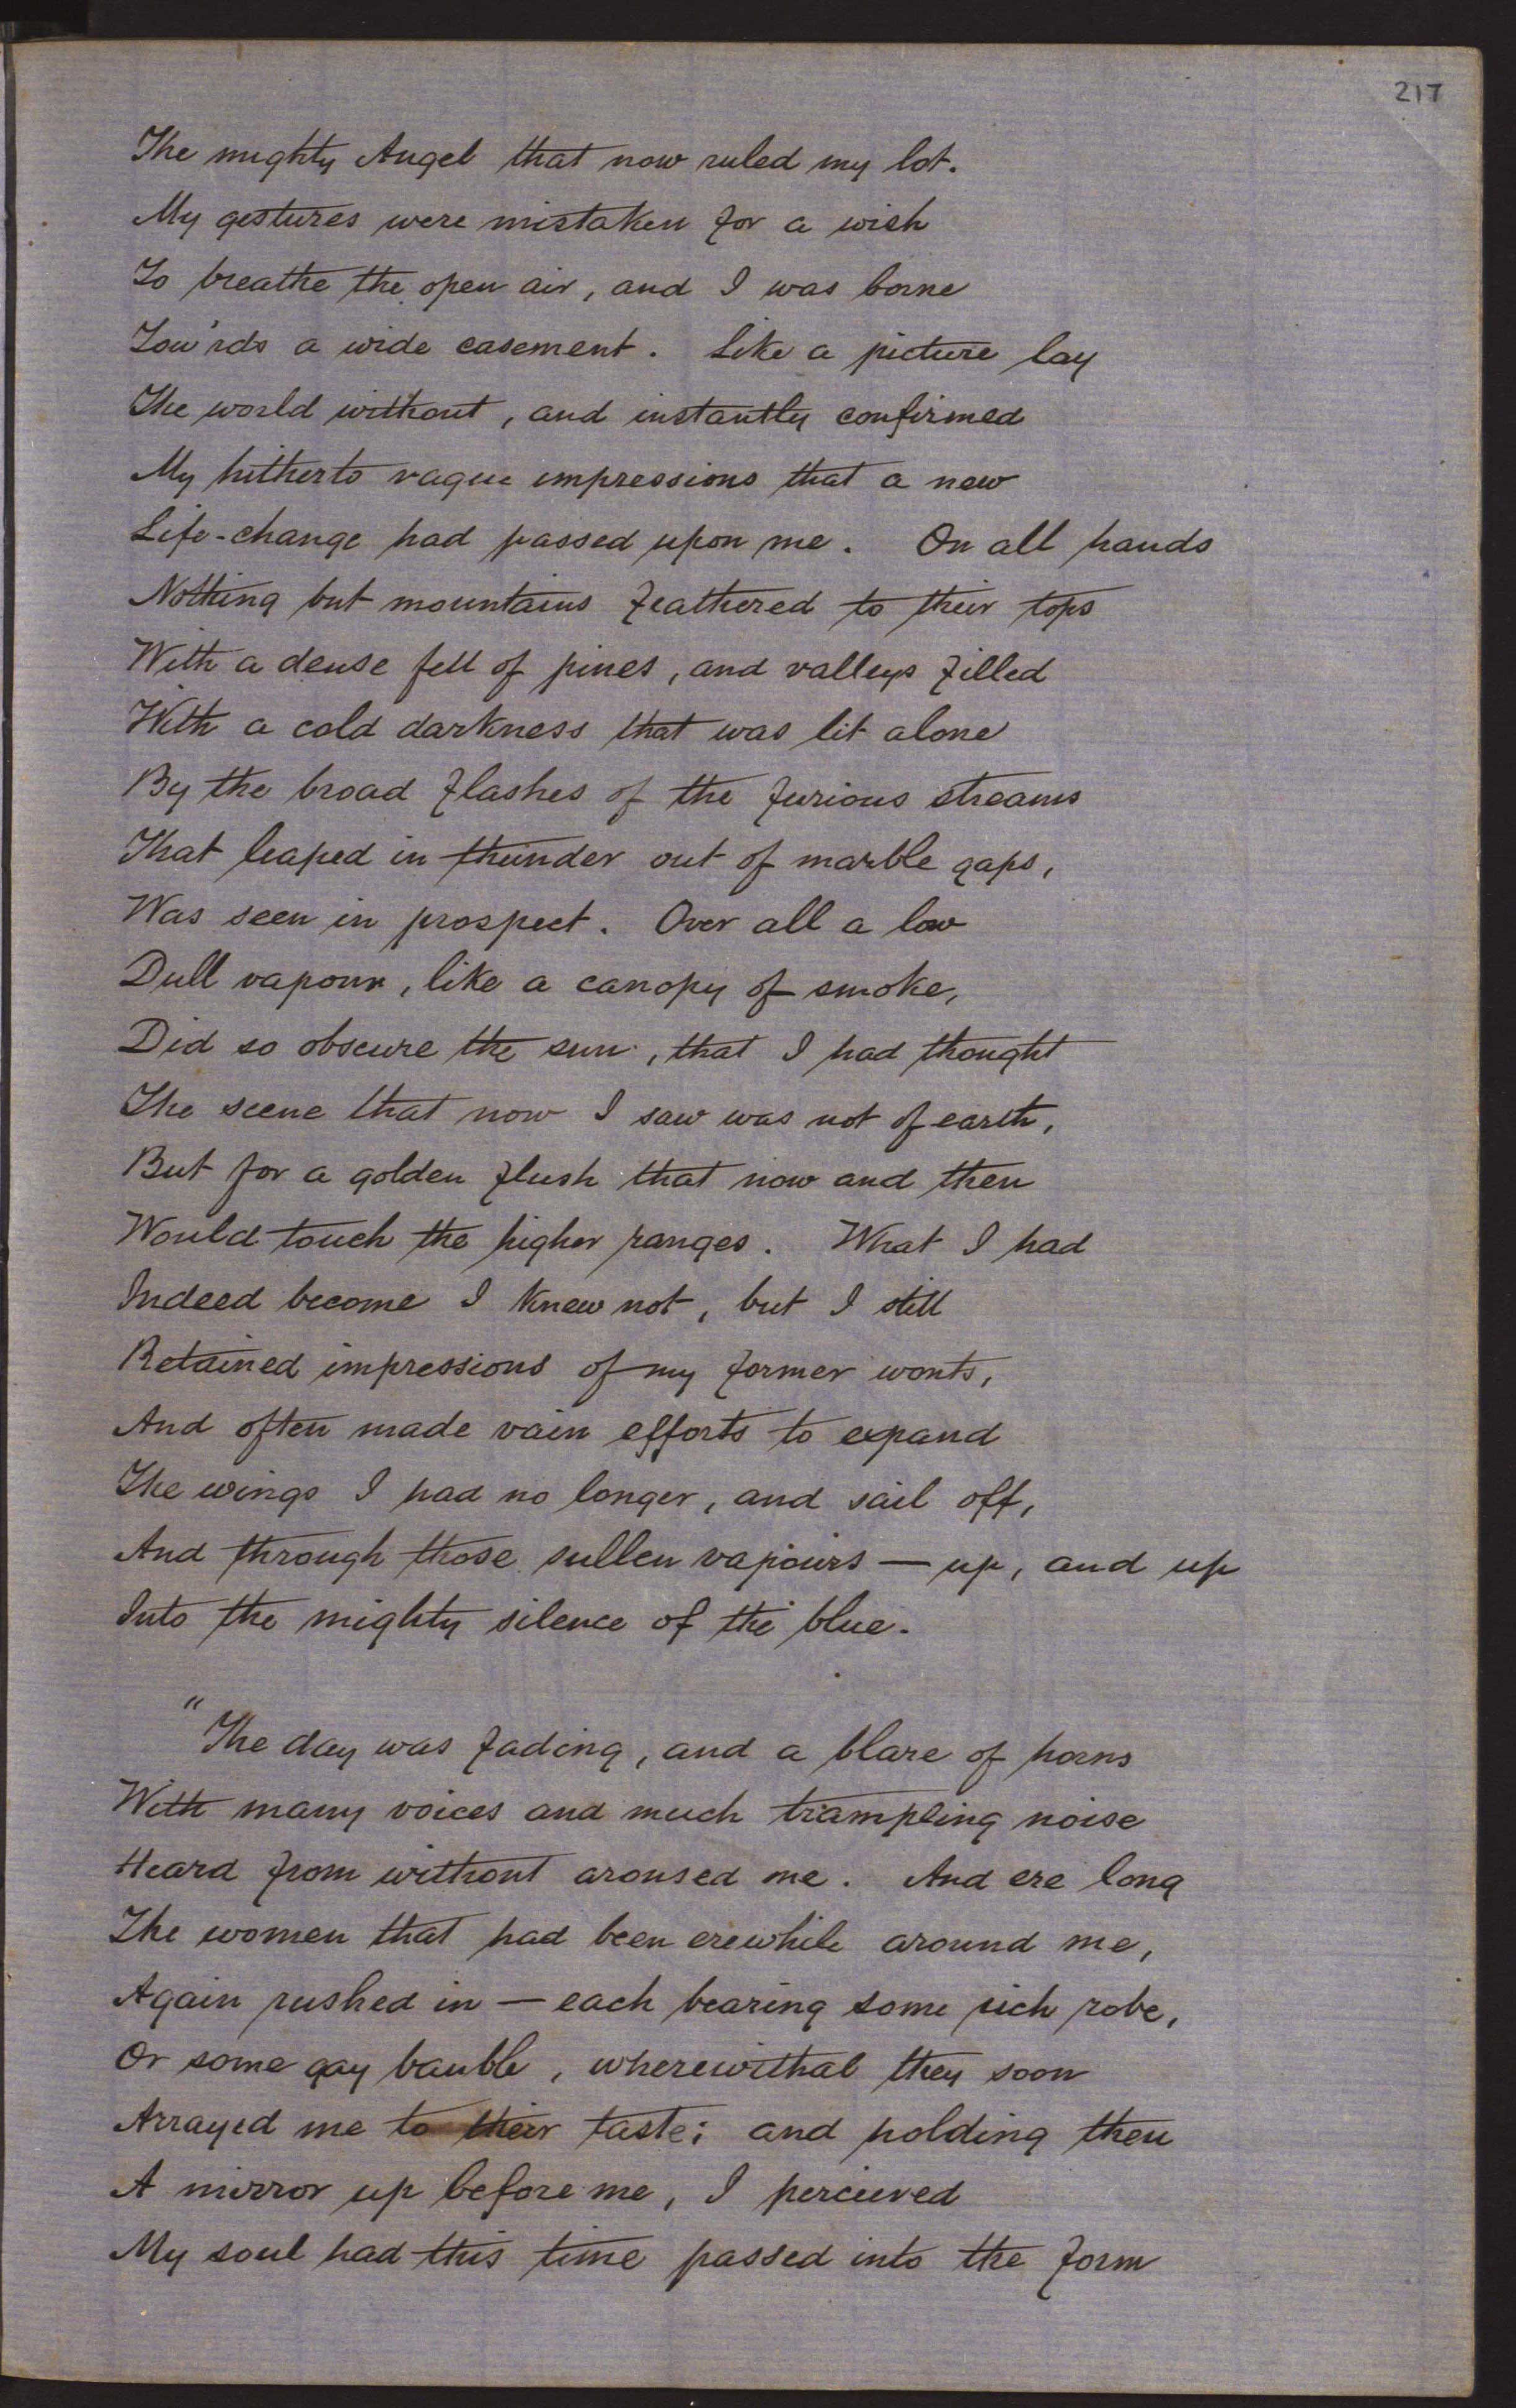 217
The mighty Angel that now ruled my lot.
My gestures were mistaken for a wish
To breathe the open air, and I was borne
Tow'rds a wide casement. Like a picture lay
The world without, and instantly confirmed
My hitherto vague impressions that a new
Life-change had passed upon me. On all hands
Nothing but mountains feathered to their tops
With a dense fell of pines, and valleys filled
With a cold darkness that was lit alone
By the broad flashes of the furious streams
That leaped in thunder out of marble gaps,
Was seen in prospect. Over all a low
Dull vapour, like a canopy of smoke,
Did so obscure the sun, that I had thought
The scene that now I saw was not of earth,
But for a golden flush that now and then
Would touch the higher ranges. What I had
Indeed become I knew not, but I still
Retained impressions of my former wonts,
And often made vain efforts to expand
The wings I had no longer, and sail off,
And through those sullen vapours — up, and up
Into the mighty silence of the blue.
"The day was fading, and a blare of horns
With many voices and much trampling noise
Heard from without aroused me. And ere long
The women that had been erewhile around me,
Again rushed in — each bearing some rich robe,
Or some gay bauble, wherewithal they soon
Arrayed me to their taste; and holding then
A mirror up before me, I perceived
My soul had this time passed into the form